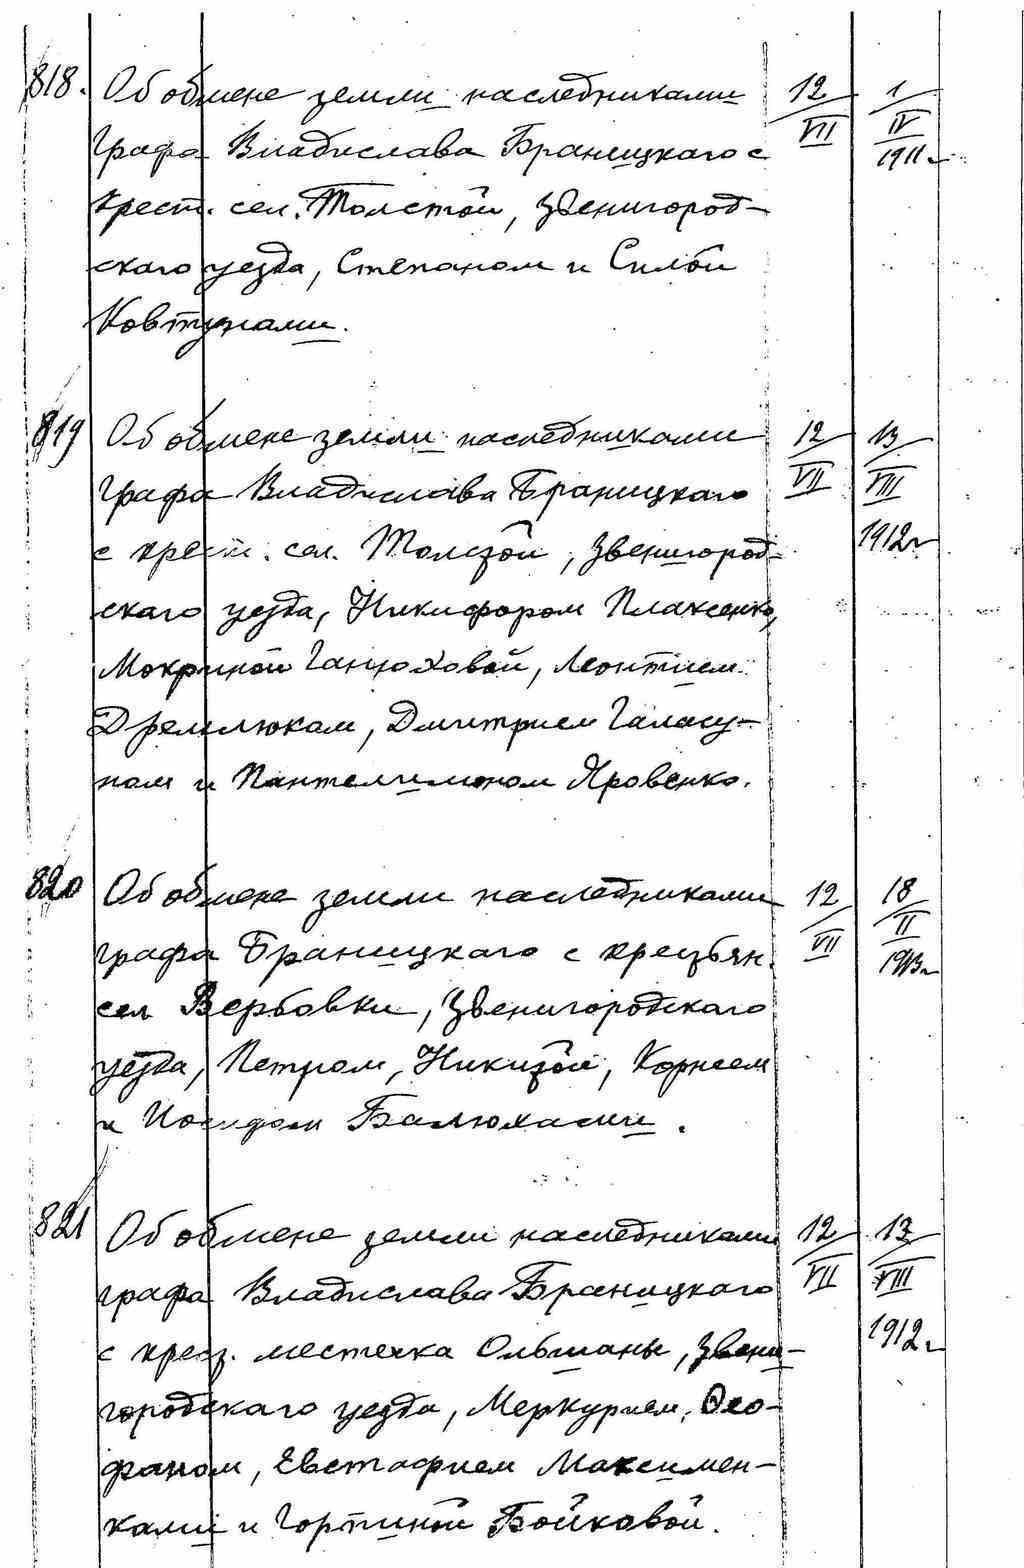 818. Об обмене земли наследниками 12/VII 1/IV 1911 г.
графа Владислава Браницкаго с
крест. сел. Толстой, Звенигород-
скаго уезда, Степаном и Силой
Ковтунами.
819 Об обмене земли наследниками 12/VII 13/VIII 1912 г.
графа Владислава Браницкаго
с крест. сел. Толстой, Звенигород-
скаго уезда, Никифором Плаксенко,
Мокриной Ганюховой, Леонтием
Дремлюком, Дмитрием Галасу-
ном и Пантелимоном Яровенко.
820 Об обмене земли наследниками 12/VII 18/II 1913 г.
графа Браницкаго с крестьян.
сел Вербовки, Звенигородскаго
уезда, Петром, Никитой, Корнеем
и Иосифом Балюхами.
821 Об обмене земли наследниками 12/VII 13/VIII 1912 г.
графа Владислава Браницкаго
с крест. местечка Ольшаны, Звени-
городскаго уезда, Меркурием, Фео-
фаном, Евстафием Максимен-
ками и Гортиной Бойковой.